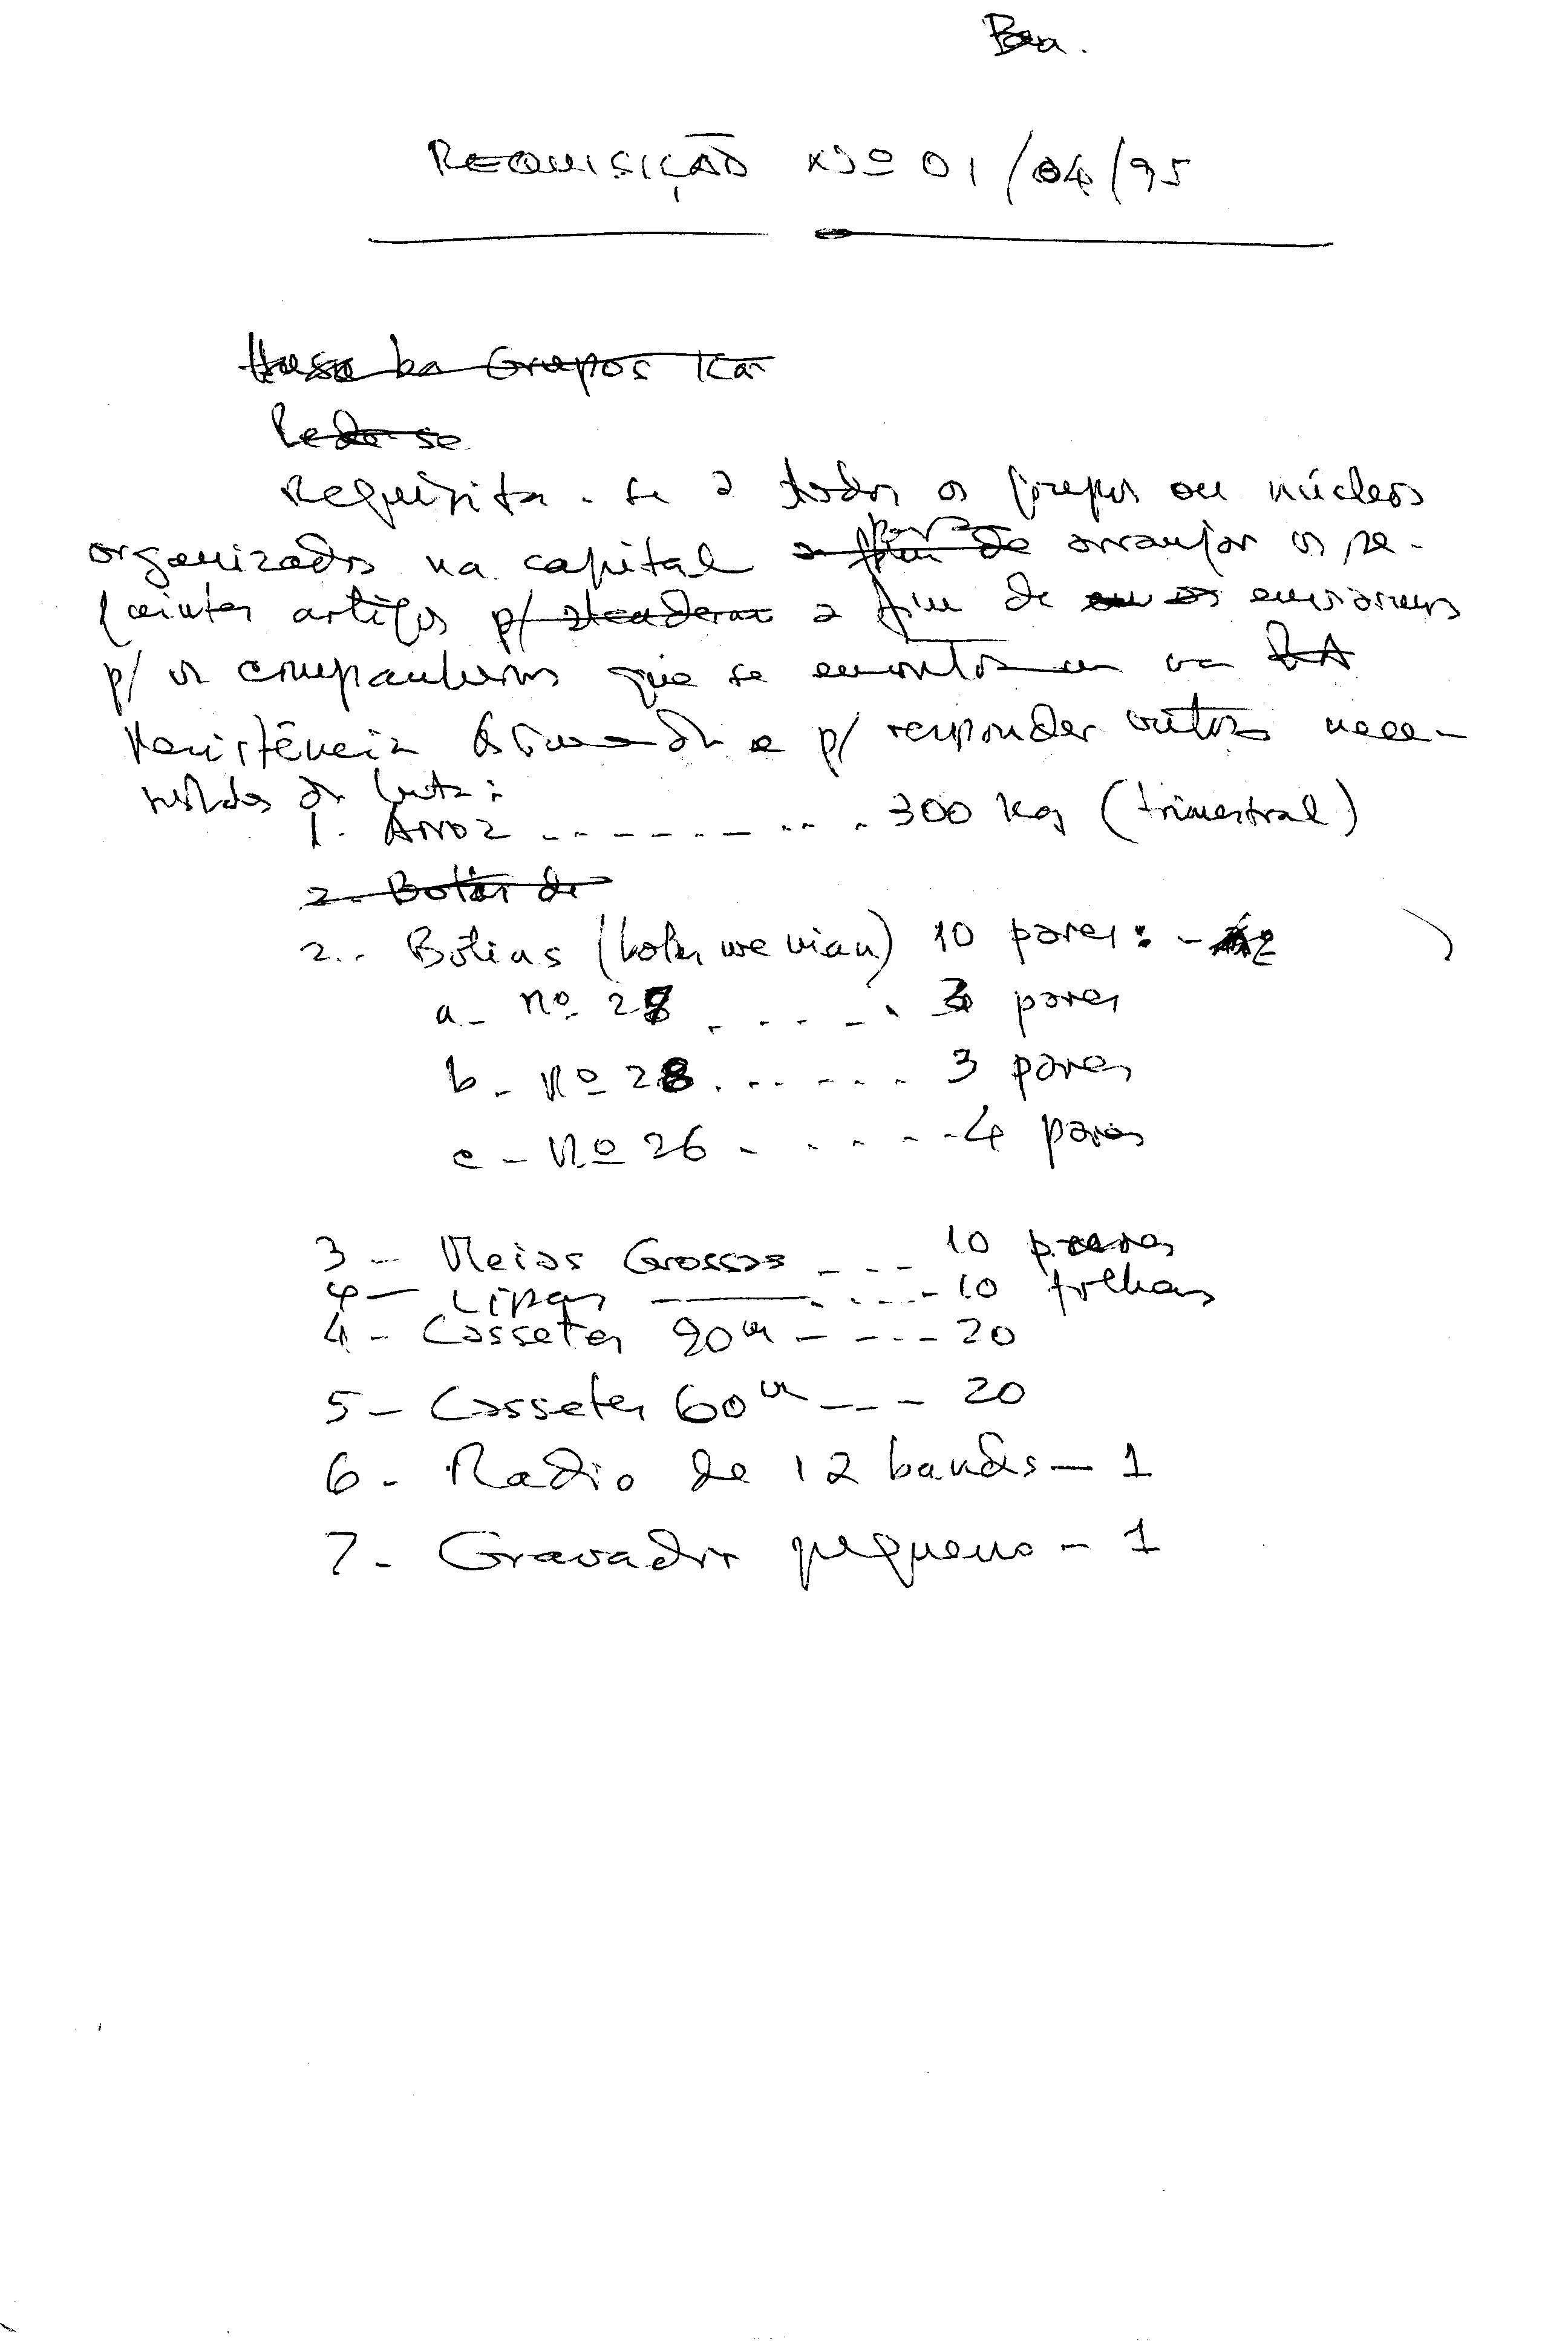 REQUISIÇÃO Nº 01/04/95
Husu ba Grupos
Pede-se
Requisita-se a todos os grupos ou núcleos
para
organizados na capital a fim de arranjar os se-
guintes artigos p/ a fim de enviarmos
p/ os companheiros que se encontram na RA
Resistência Armada e p/ responder outras nece-
ssidades da luta:
1. Arroz --------- 300 kg (trimestral)
2. Botas de
2.. Botinas 10 pares: -
a- nº 27 ...... 3 pares
b- nº 28 ...... 3 pares
c- nº 26 ...... 4 pares
3- Meias Grossas ---- 10 pares
4- Lipas ---- 10 folhas
4- Cassetes 90m ---- 20
5- Cassetes 60m --- 20
6- Radio de 12 bandas - 1
7- Gravador pequeno - 1